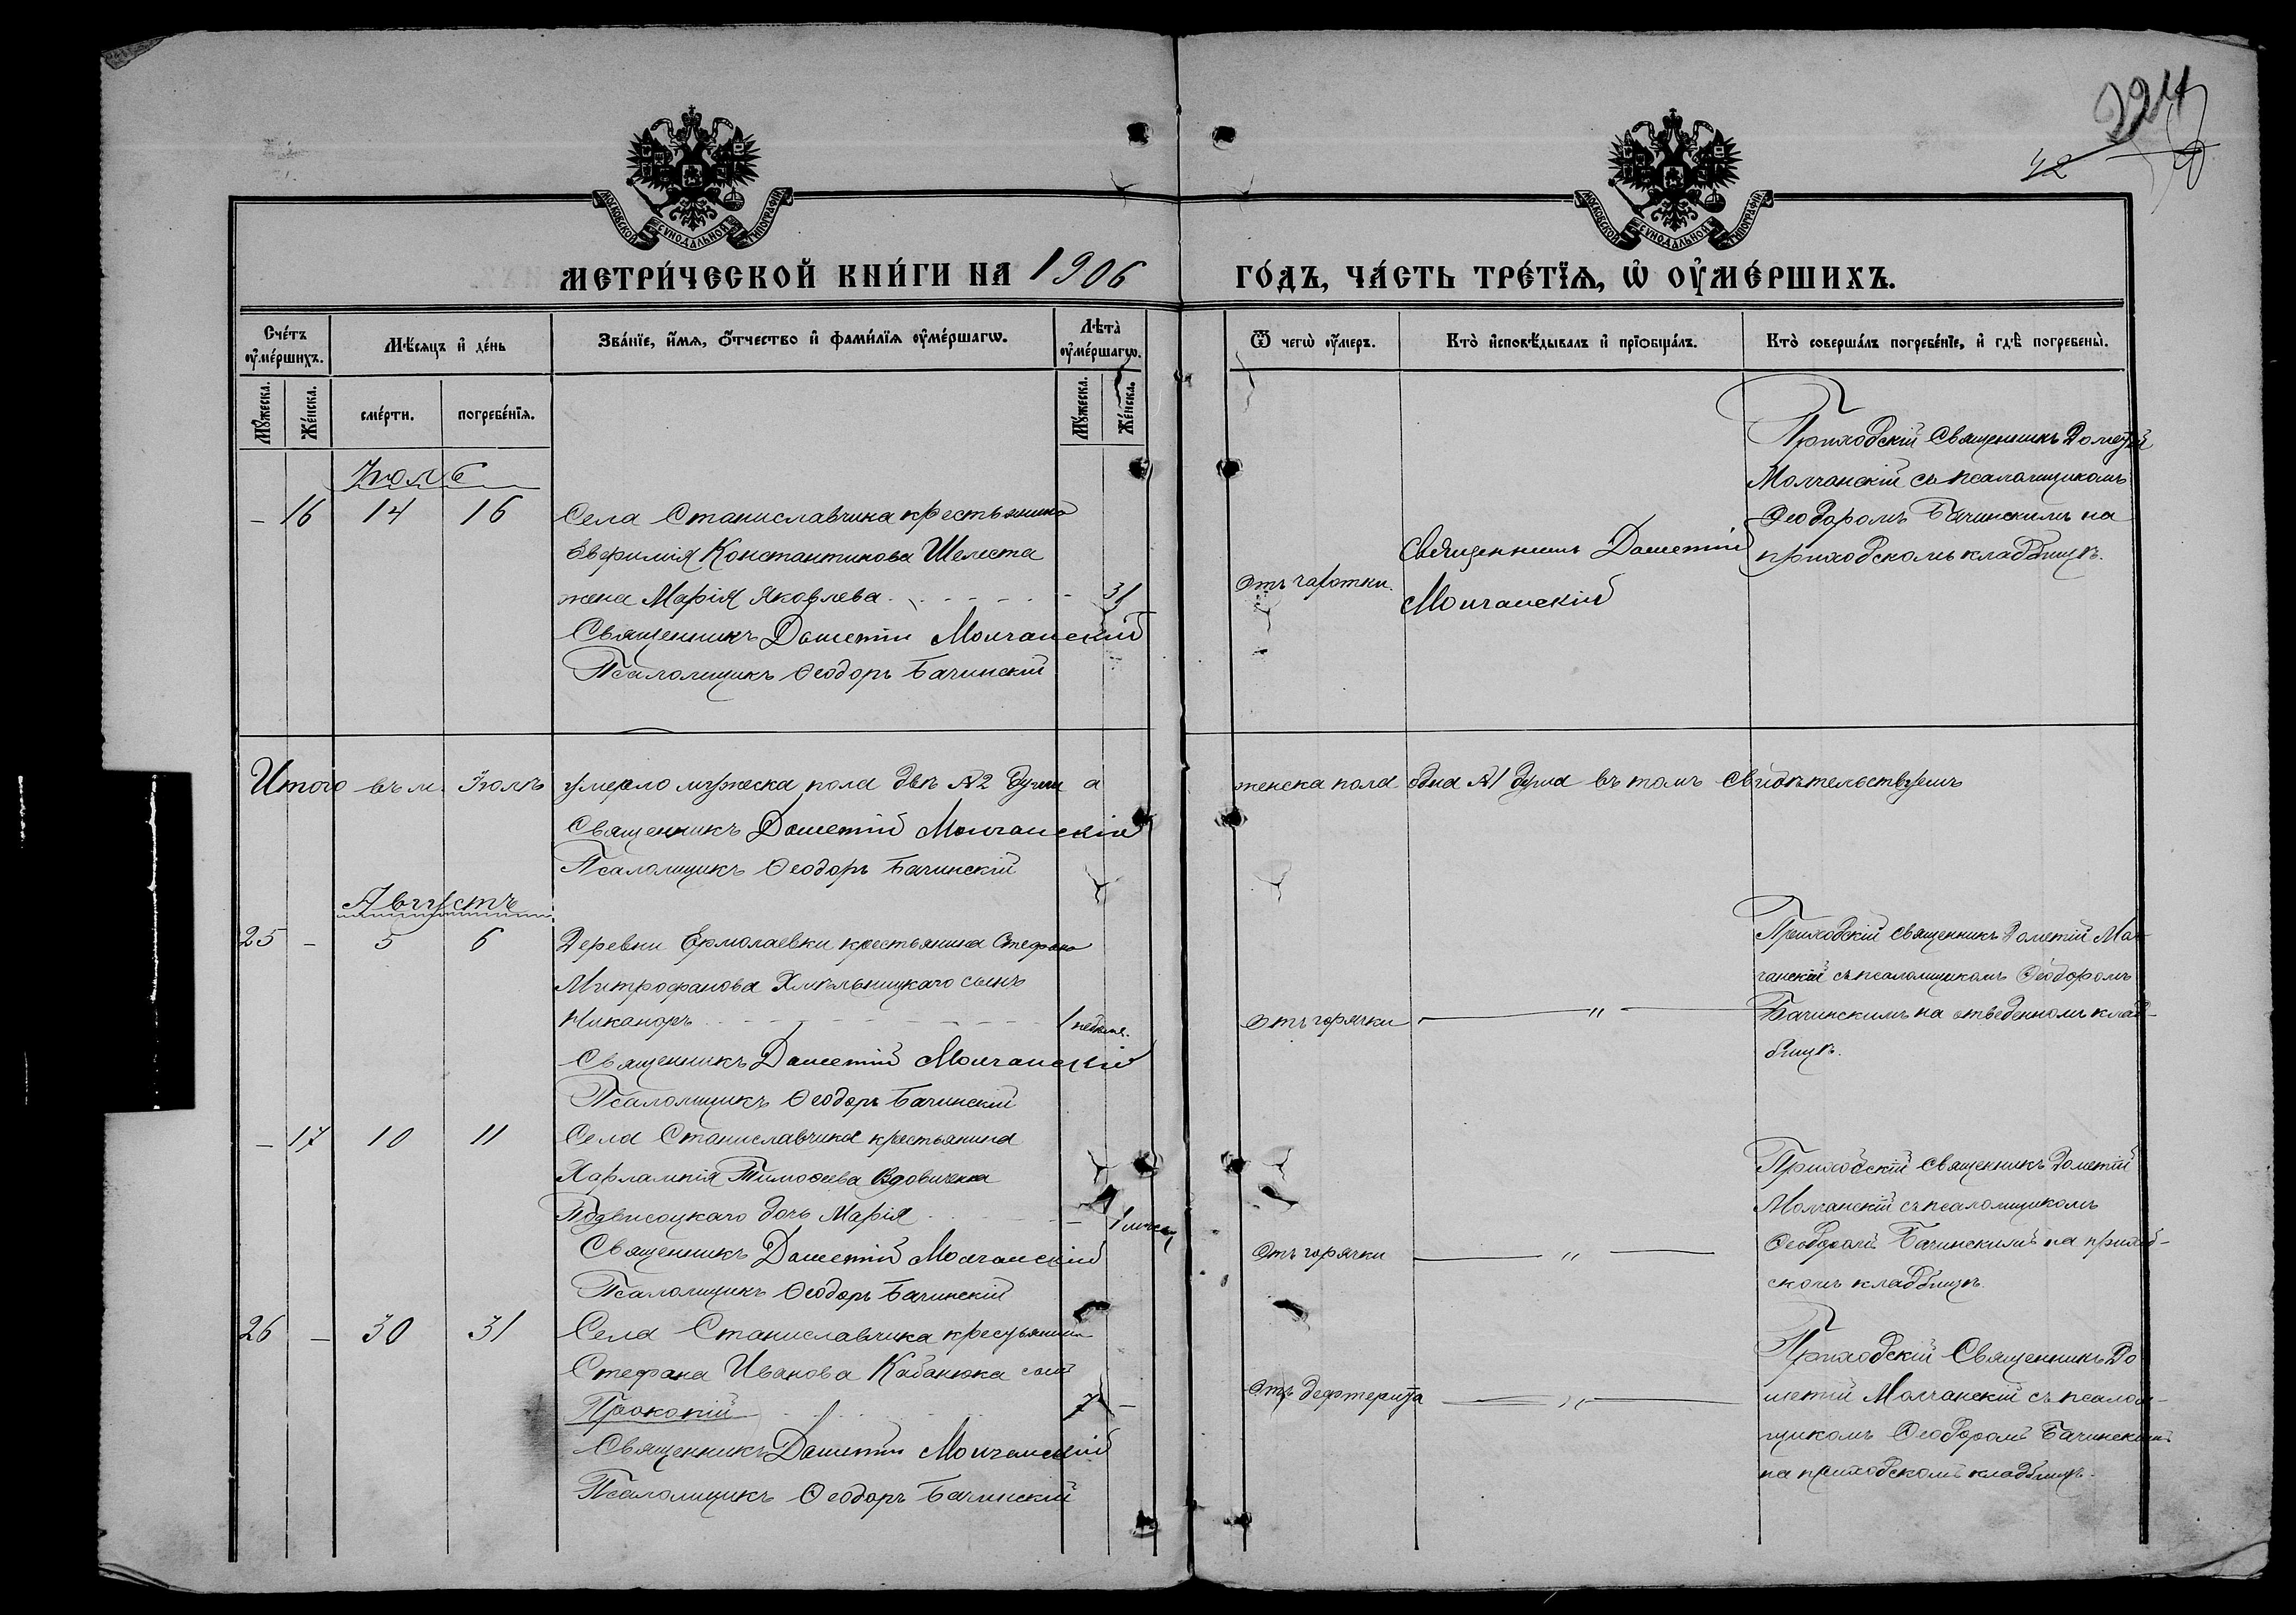 224
42
МОСКОВСКОЙ СѴНОДАЛЬНОЙ ТИПОГРАФІИ
МОСКОВСКОЙ СѴНОДАЛЬНОЙ ТИПОГРАФІИ
МЕТРИ́ЧЕСКОЙ КНИ́ГИ НА 1906
ГО́ДЪ, ЧА́СТЬ ТРЕ́ТЇѦ, Ѡ҆ ОУ҆МЕ́РШИХЪ.
Сче́тъ оу҆ме́ршихъ.
Мѣ́сяцъ и҆ де́нь
Зва́нїе, и҆́мѧ, ѻ҆́тчество и҆ фами́лїѧ оу҆ме́ршагѡ.
Лѣта̀ оу҆ме́ршагѡ.
Ѿ чегѡ̀ оу҆́меръ.
Кто̀ и҆сповѣ́дывалъ и҆ прїѻбща́лъ.
Кто̀ соверша́лъ погребе́нїе, и҆ гдѣ̀ погребены̀.
Мꙋ́жеска.
Же́нска.
сме́рти.
погребе́нїѧ.
Мꙋ́жеска.
Же́нска.
Іюль
– 16 14 16 Села Станиславчика крестьянина
Евфимія Константинова Шелеста
жена Марія Яковлева - 31
Священникъ Дометій Молчанскій
Псаломщикъ Ѳеодоръ Бачинскій
Отъ чахотки.
Священникъ Дометій
Молчанскій
Приходскій Священникъ Дометій
Молчанскій съ псаломщикомъ
Ѳеодоромъ Бачинскимъ на
приходскомъ кладбищѣ.
Итого въ м. Іюлѣ умерло мужеска пола двѣ №2 души а
женска пола одна №1 душа въ томъ свидѣтельствуемъ
Священникъ Дометій Молчанскій
Псаломщикъ Ѳеодоръ Бачинскій
Августъ
25 – 5 6 Деревни Ермолаевки крестьянина Стефана
Митрофанова Хмѣльницкаго сынъ
Никаноръ 1 недѣля.
Священникъ Дометій Молчанскій
Псаломщикъ Ѳеодоръ Бачинскій
Отъ горячки — " —
Приходскій Священникъ Дометій Мол-
чанскій съ псаломщикомъ Ѳеодоромъ
Бачинскимъ на отведенномъ клад-
бищѣ.
– 17 10 11 Села Станиславчика крестьянина
Харлампія Тимоѳеева Вдовиченка
Подвысоцкаго дочь Марія – 1 мѣсяц
Священникъ Дометій Молчанскій
Псаломщикъ Ѳеодоръ Бачинскій
Отъ горячки — " —
Приходскій Священникъ Дометій
Молчанскій съ псаломщикомъ
Ѳеодоромъ Бачинскимъ на приход-
скомъ кладбищѣ.
26 – 30 31 Села Станиславчика крестьянина
Стефана Иванова Кабанюка сынъ
Прокопій 7 –
Священникъ Дометій Молчанскій
Псаломщикъ Ѳеодоръ Бачинскій
Отъ дефтерита — " —
Приходскій Священникъ До
метій Молчанскій съ псалом-
щикомъ Ѳеодоромъ Бачинскимъ
на приходскомъ кладбищѣ.